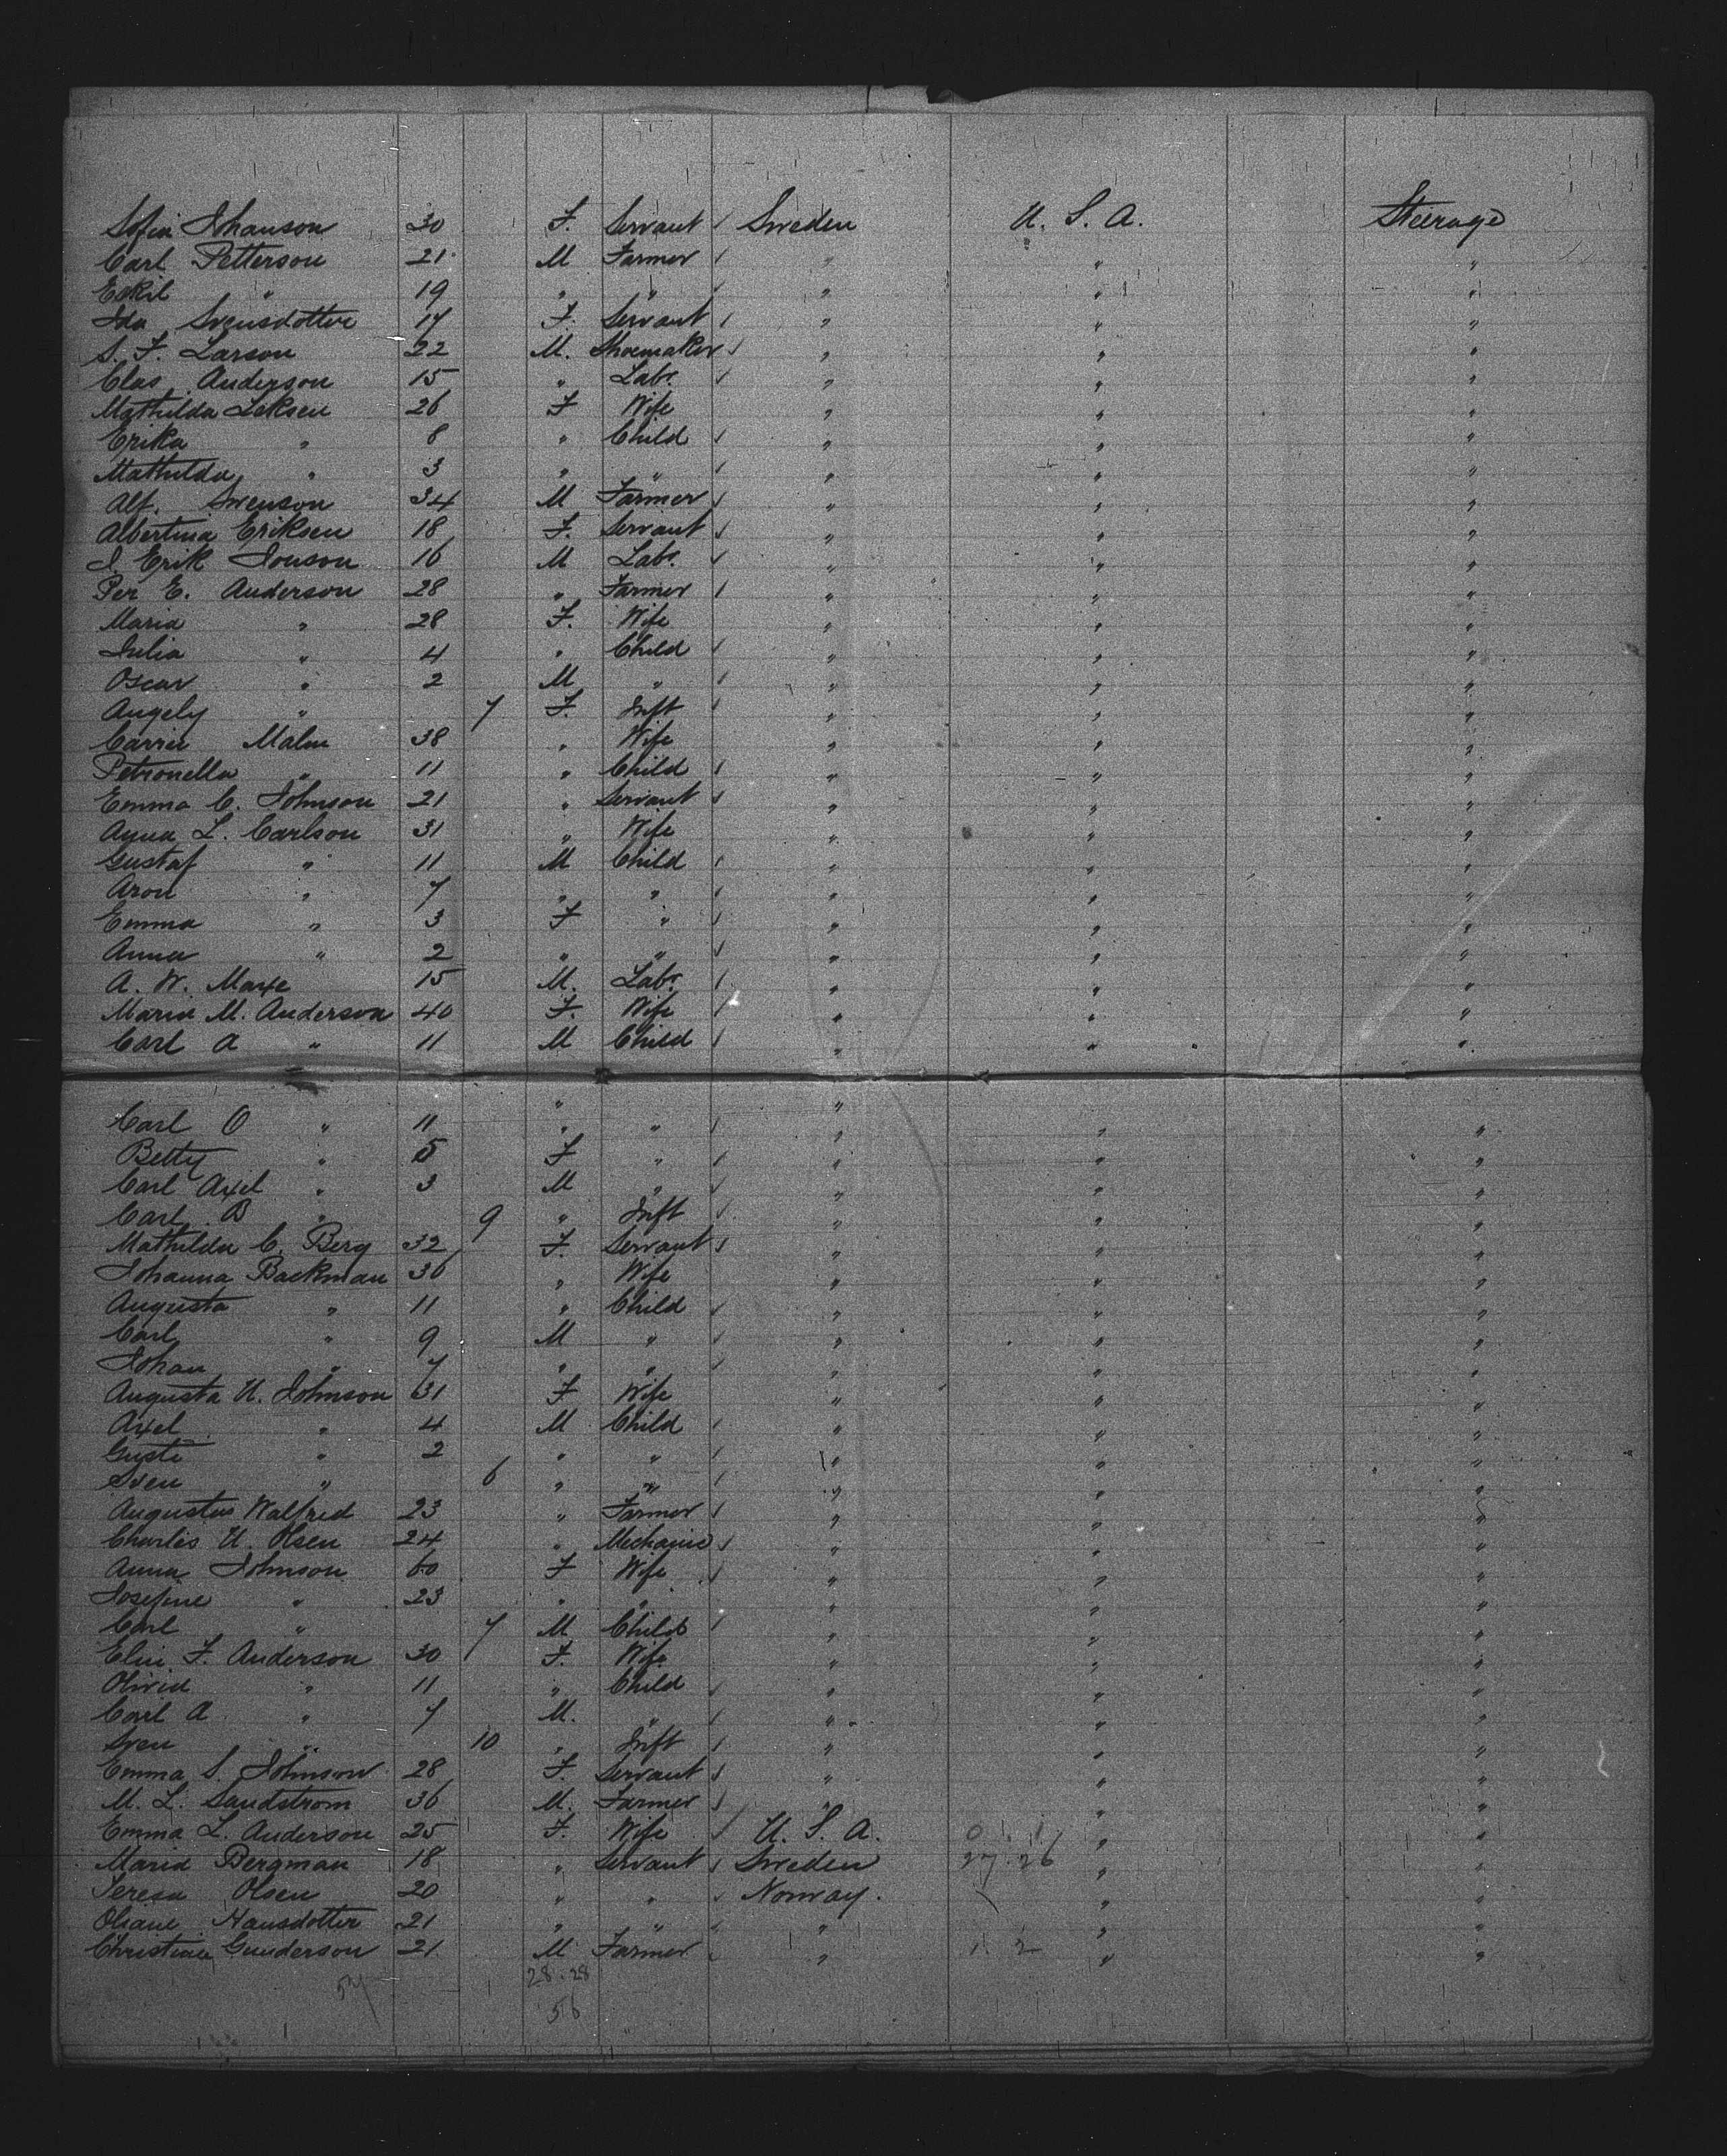 Sofia Johanson 30 F. Servant Sweden U. S. A. Steerage
Carl Petterson 21 M Farmer " " "
Eskil " 19 " " " " "
Ida Svensdotter 17 F. Servant " " "
S. F. Larson 22 M. Shoemaker " " "
Clas Anderson 15 " Labr. " " "
Mathilda 26 F Wife " " "
Erika " 8 " Child " " "
Mathilda " 3 " " " " "
Alf. Swenson 34 M Farmer " " "
Albertina Eriksen 18 F. Servant " " "
J. Erik Jonson 16 M Labr. " " "
Per E. Anderson 28 " Farmer " " "
Maria " 28 F. Wife " " "
Julia " 4 " Child " " "
Oscar " 2 M " " " "
Angely " 7 F. Inft " " "
Carrie Malm 38 " Wife " " "
Petronella " 11 " Child " " "
Emma C. Johnson 21 " Servant " " "
Anna L. Carlson 31 " Wife " " "
Gustaf " 11 M Child " " "
Aron " 7 " " " " "
Emma " 3 F " " " "
Anna " 2 " " " " "
A. W. 15 M. Labr. " " "
Maria M. Anderson 40 F. Wife " " "
Carl A " 11 M Child " " "
" "
Carl O " 11 " " " " "
Betty " 5 F " " " "
Carl Axel " 3 M " " " "
Carl B " 9 " Inft " " "
Mathilda C. Berg 32 F. Servant " " "
Johanna Backman 36 " Wife " " "
Augusta " 11 " Child " " "
Carl " 9 M " " " "
Johan " 7 " " " " "
Augusta U. Johnson 31 F Wife " " "
Axel " 4 M Child " " "
Guste " 2 " " " " "
Sven " 6 " " " " "
Augustus Walfred 23 " Farmer " " "
Charles U. Olsen 24 " Mechanic " " "
Anna Johnson 60 F Wife " " "
Josefine " 23 " " " " "
Carl " 7 M Child " " "
Elin F. Anderson 30 F. Wife " " "
Olivia " 11 " Child " " "
Carl A " 7 M. " " " "
Sven " 10 " Inft " " "
Emma S. Johnson 28 F. Servant " " "
M. L. Sandstrom 36 M. Farmer " " "
Emma L. Anderson 25 F. Wife U. S. A. 0 1 " "
Maria Bergman 18 " Servant Sweden 27 26 " "
Teresa Olsen 20 " " Norway. " "
Oliane Hansdotter 21 " " " " "
Christian Gunderson 21 M Farmer " 1 2 " "
57 28 . 28
56